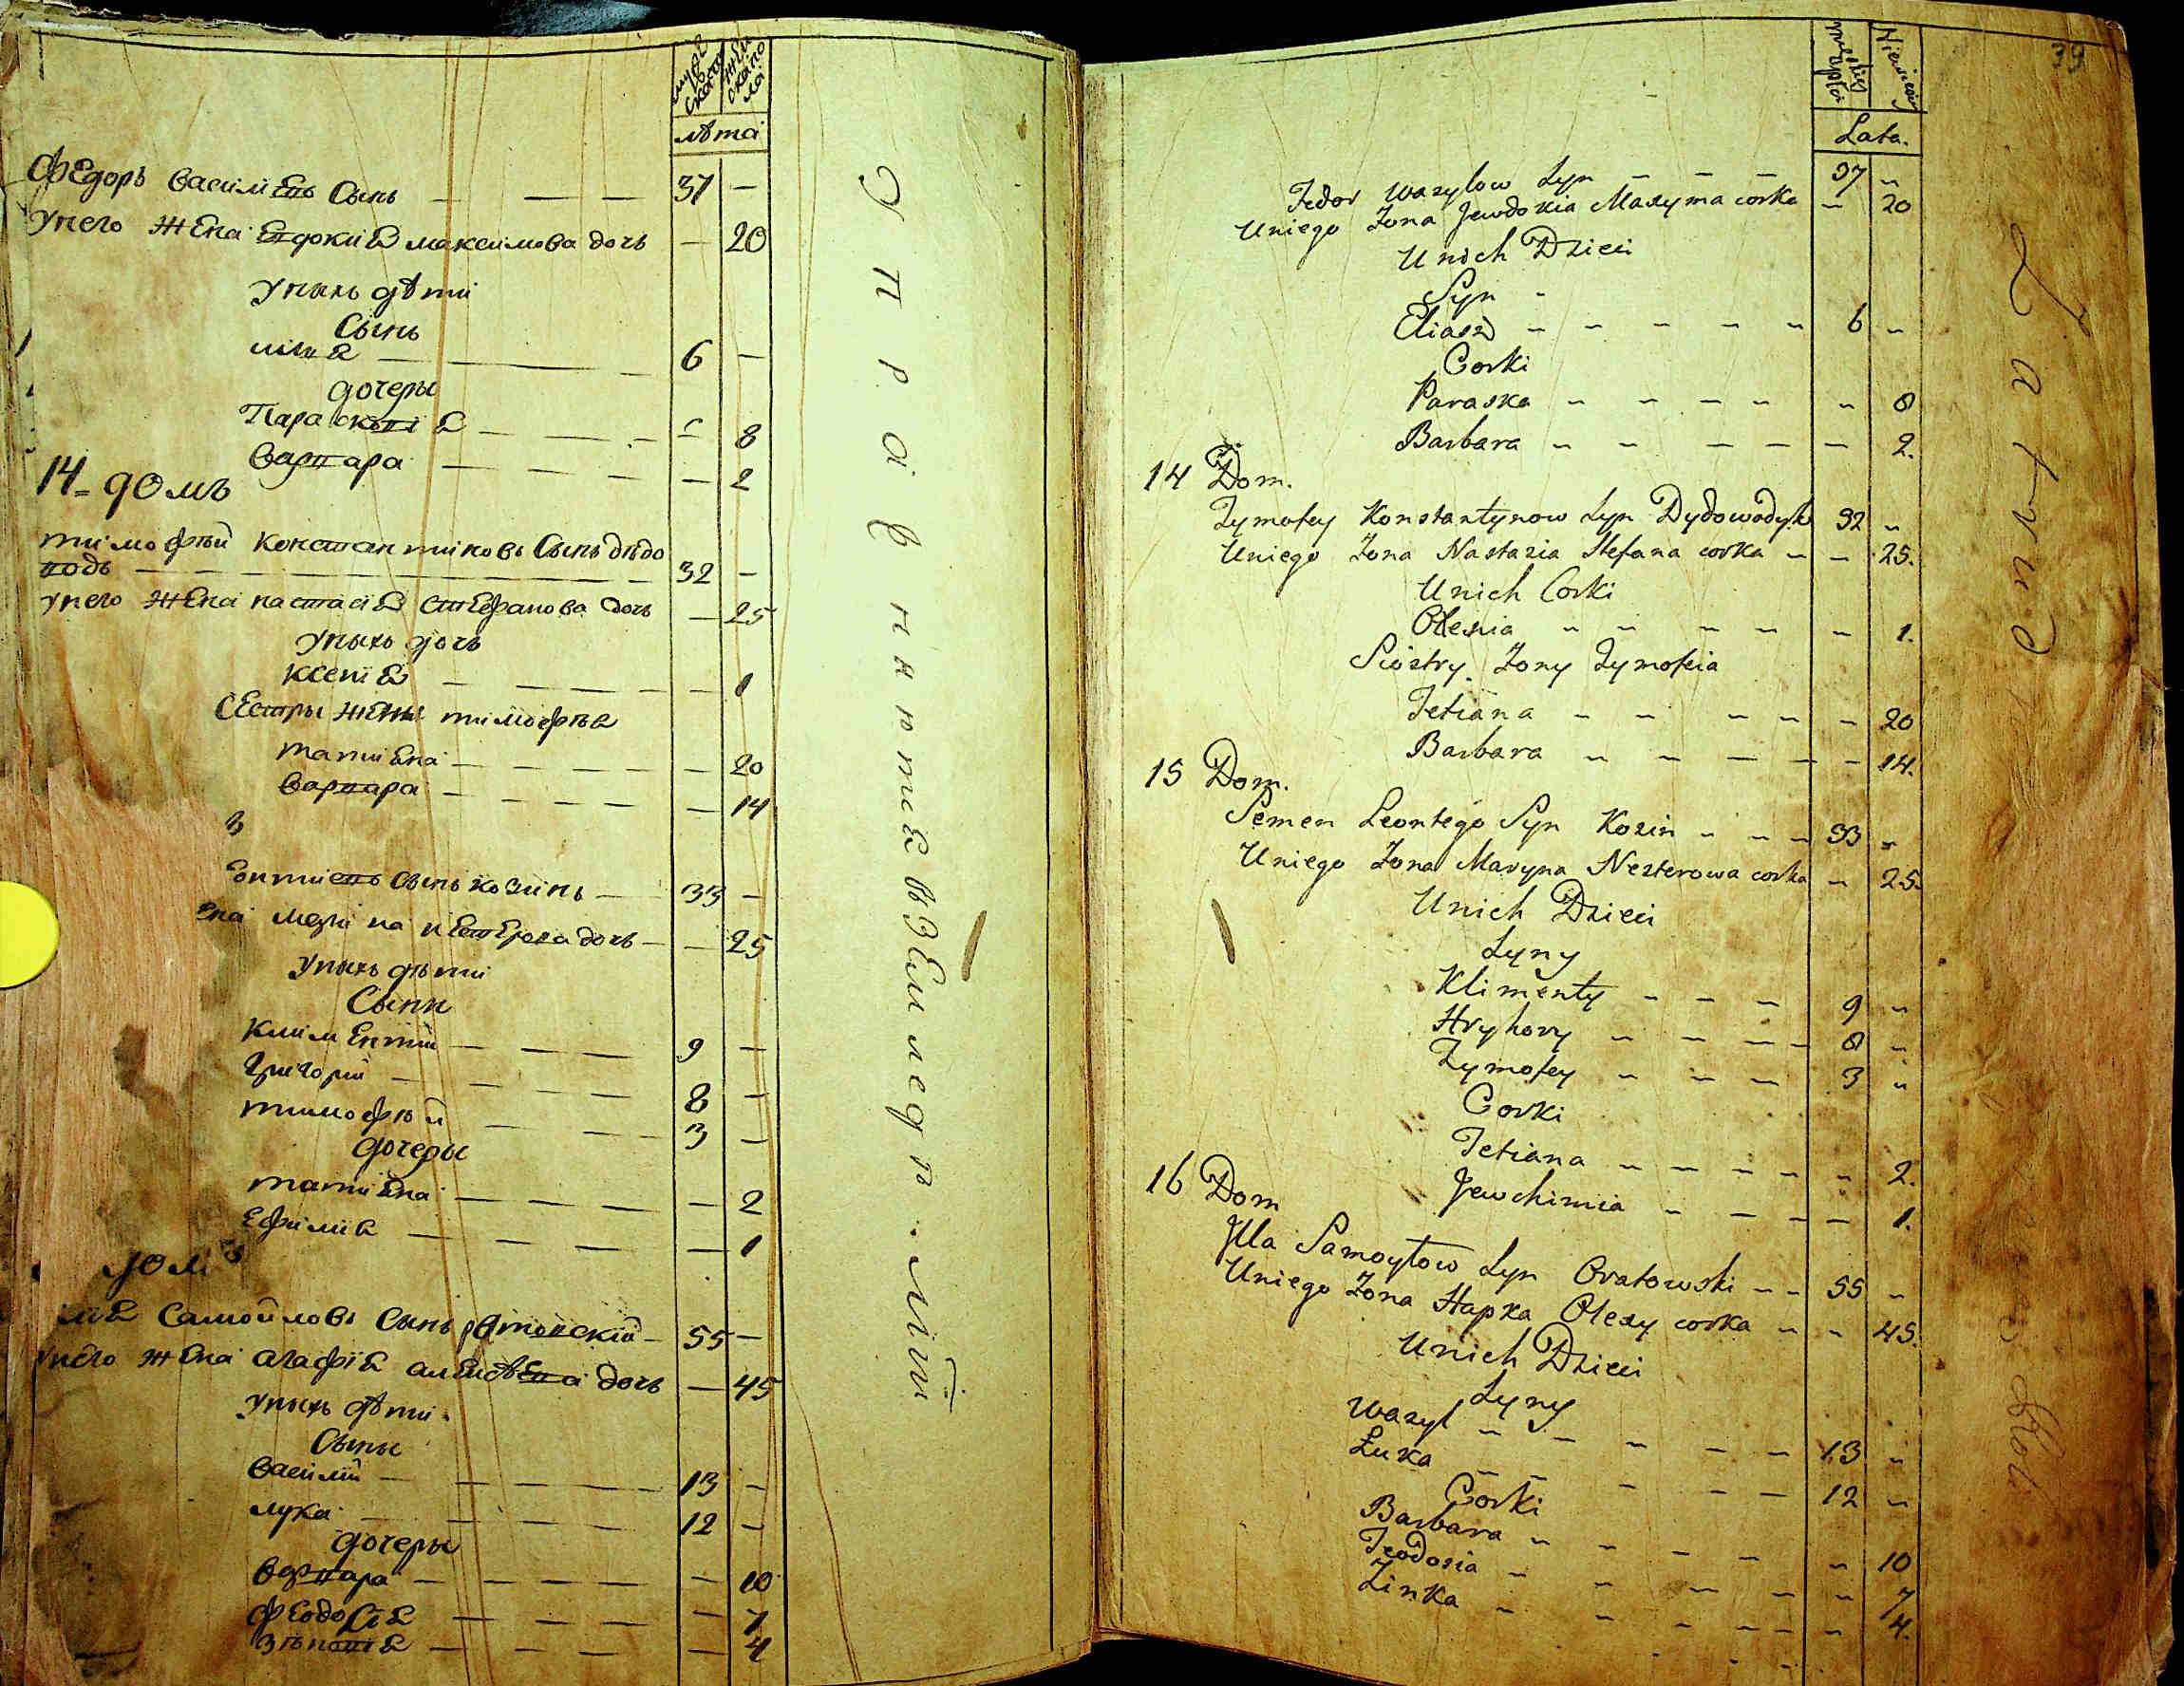 мужеска полу
женска пола
лѣта
Федоръ Василіевъ Сынъ — — — 37 —
Унего жена Евдокия максимова дочь — 20
Уныхъ дѣти
Сынъ
илия — — 6 —
дочеры
Параскѣвия — — — — 8
Варвара — — — — 2
14 - домъ
тимофей константиновъ Сынъ дѣдо
водъ — — — 32 —
унего жена настасия стефанова дочь — 25
уныхъ дочь
ксения — — — — 1
сестры жены тимофѣя
татияна — — — — 20
варвара — — — — 14
еонтиевъ сынъ козинъ — 33 —
ена марина нестерова дочь — — 25
уныхъ дѣти
Сыны
климентий — — — 9 —
григорий — — — 8 —
тимофей — — — 3 —
дочеры
татияна — — — — 2
Ефимия — — — — 1
домъ
илия самойловъ сынъ ратовский — 55 —
унего жена агафия алексѣева дочь — 45
уныхъ дѣти
Сыны
василий — — — 13 —
лука — — — 12 —
дочеры
варвара — — — — 10
феодосия — — — — 7
зѣновия — — — — 4
39
Lata.
Fedor Wasylow Syn — — — 37 "
Uniego Zona Jewdokia Maxyma corka — 20
Unich Dzieci
Syn
Eliasz — — — — — 6 "
Corki
Paraska — — — — " 8
Barbara — — — — — 2.
14 Dom.
Tymofey Konstantynow Syn Dydowodyk 32 "
Uniego Zona Nastazia Stefana corka — — 25.
Unich Corki
Olexia — — — — — 1.
Siostry Zony Tymofeia
Tetiana — — — — — 20
Barbara — — — — — 14.
15 Dom.
Semen Leontego Syn Kozin — — — 33 "
Uniego Zona Maryna Nesterowa corka — 25.
Unich Dzieci
Syny
Klimenty — — — 9 "
Hryhory — — — — 8 "
Tymofey — — — 3 "
Corki
Tetiana — — — — — 2.
Jewchimia — — — — 1.
16 Dom
Illa Samoyłow Syn Oratowski — — 55 "
Uniego Zona Hapka Olexy corka — — 45.
Unich Dzieci
Syny
Wasyl — — — — — 13 "
Łuka — — — — — 12 "
Corki
Barbara — — — — — 10
Teodosia — — — — — 7
Zinka — — — — — 4.